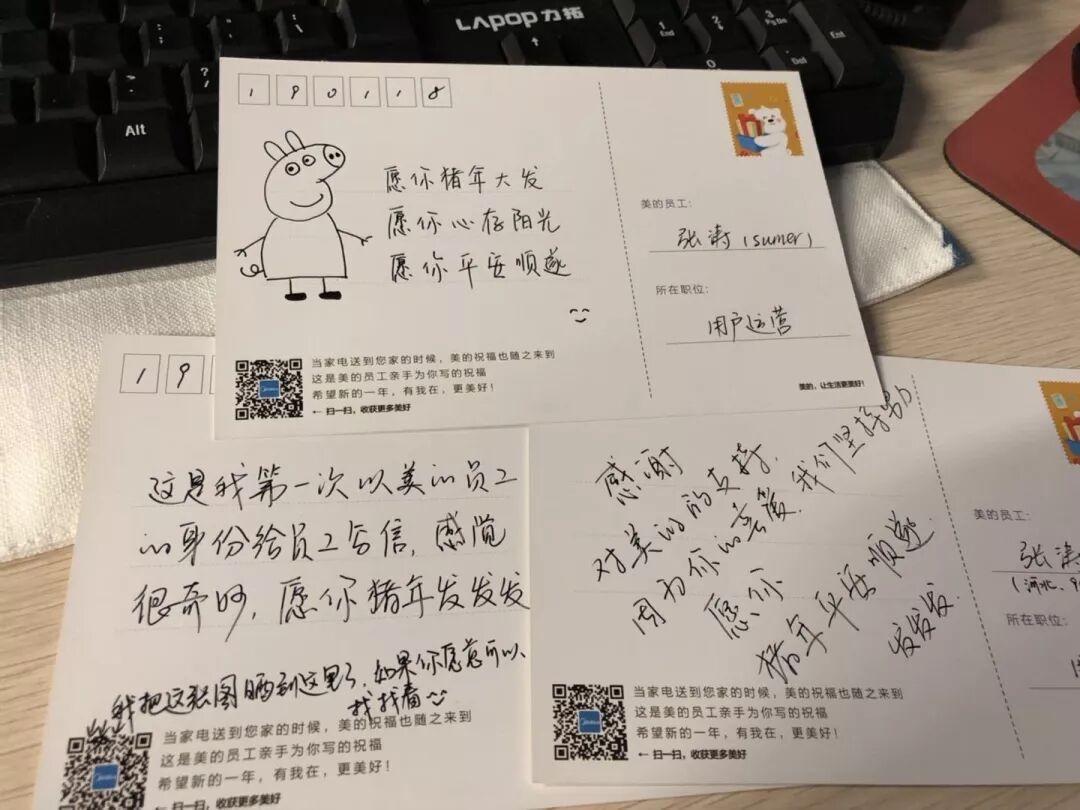 LAPOP力拓
Alt
End
Ent
Del
190118
愿你猪年大发
愿你心存阳光
愿你平安顺遂
美的员工:
张涛(sumer)
所在职位:
用户运营
当家电送到您家的时候,美的祝福也随之来到
这是美的员工亲手为你写的祝福
希望新的一年,有我在,更美好!
← 扫一扫,收获更多美好
美的,让生活更美好!
19
这是我第一次以美的员工
的身份给员工写信,感觉
很奇妙,愿你猪年发发发
我把这张图晒到这里了,如果你愿意可以
找找看
当家电送到您家的时候,美的祝福也随之来到
这是美的员工亲手为你写的祝福
希望新的一年,有我在,更美好!
← 扫一扫,收获更多美好
感谢
对美的的支持,
因为你的 我们坚持努力
愿你
猪年平安顺遂
发发发
美的员工:
张涛
(河北、
所在职位:
当家电送到您家的时候,美的祝福也随之来到
这是美的员工亲手为你写的祝福
希望新的一年,有我在,更美好!
← 扫一扫,收获更多美好